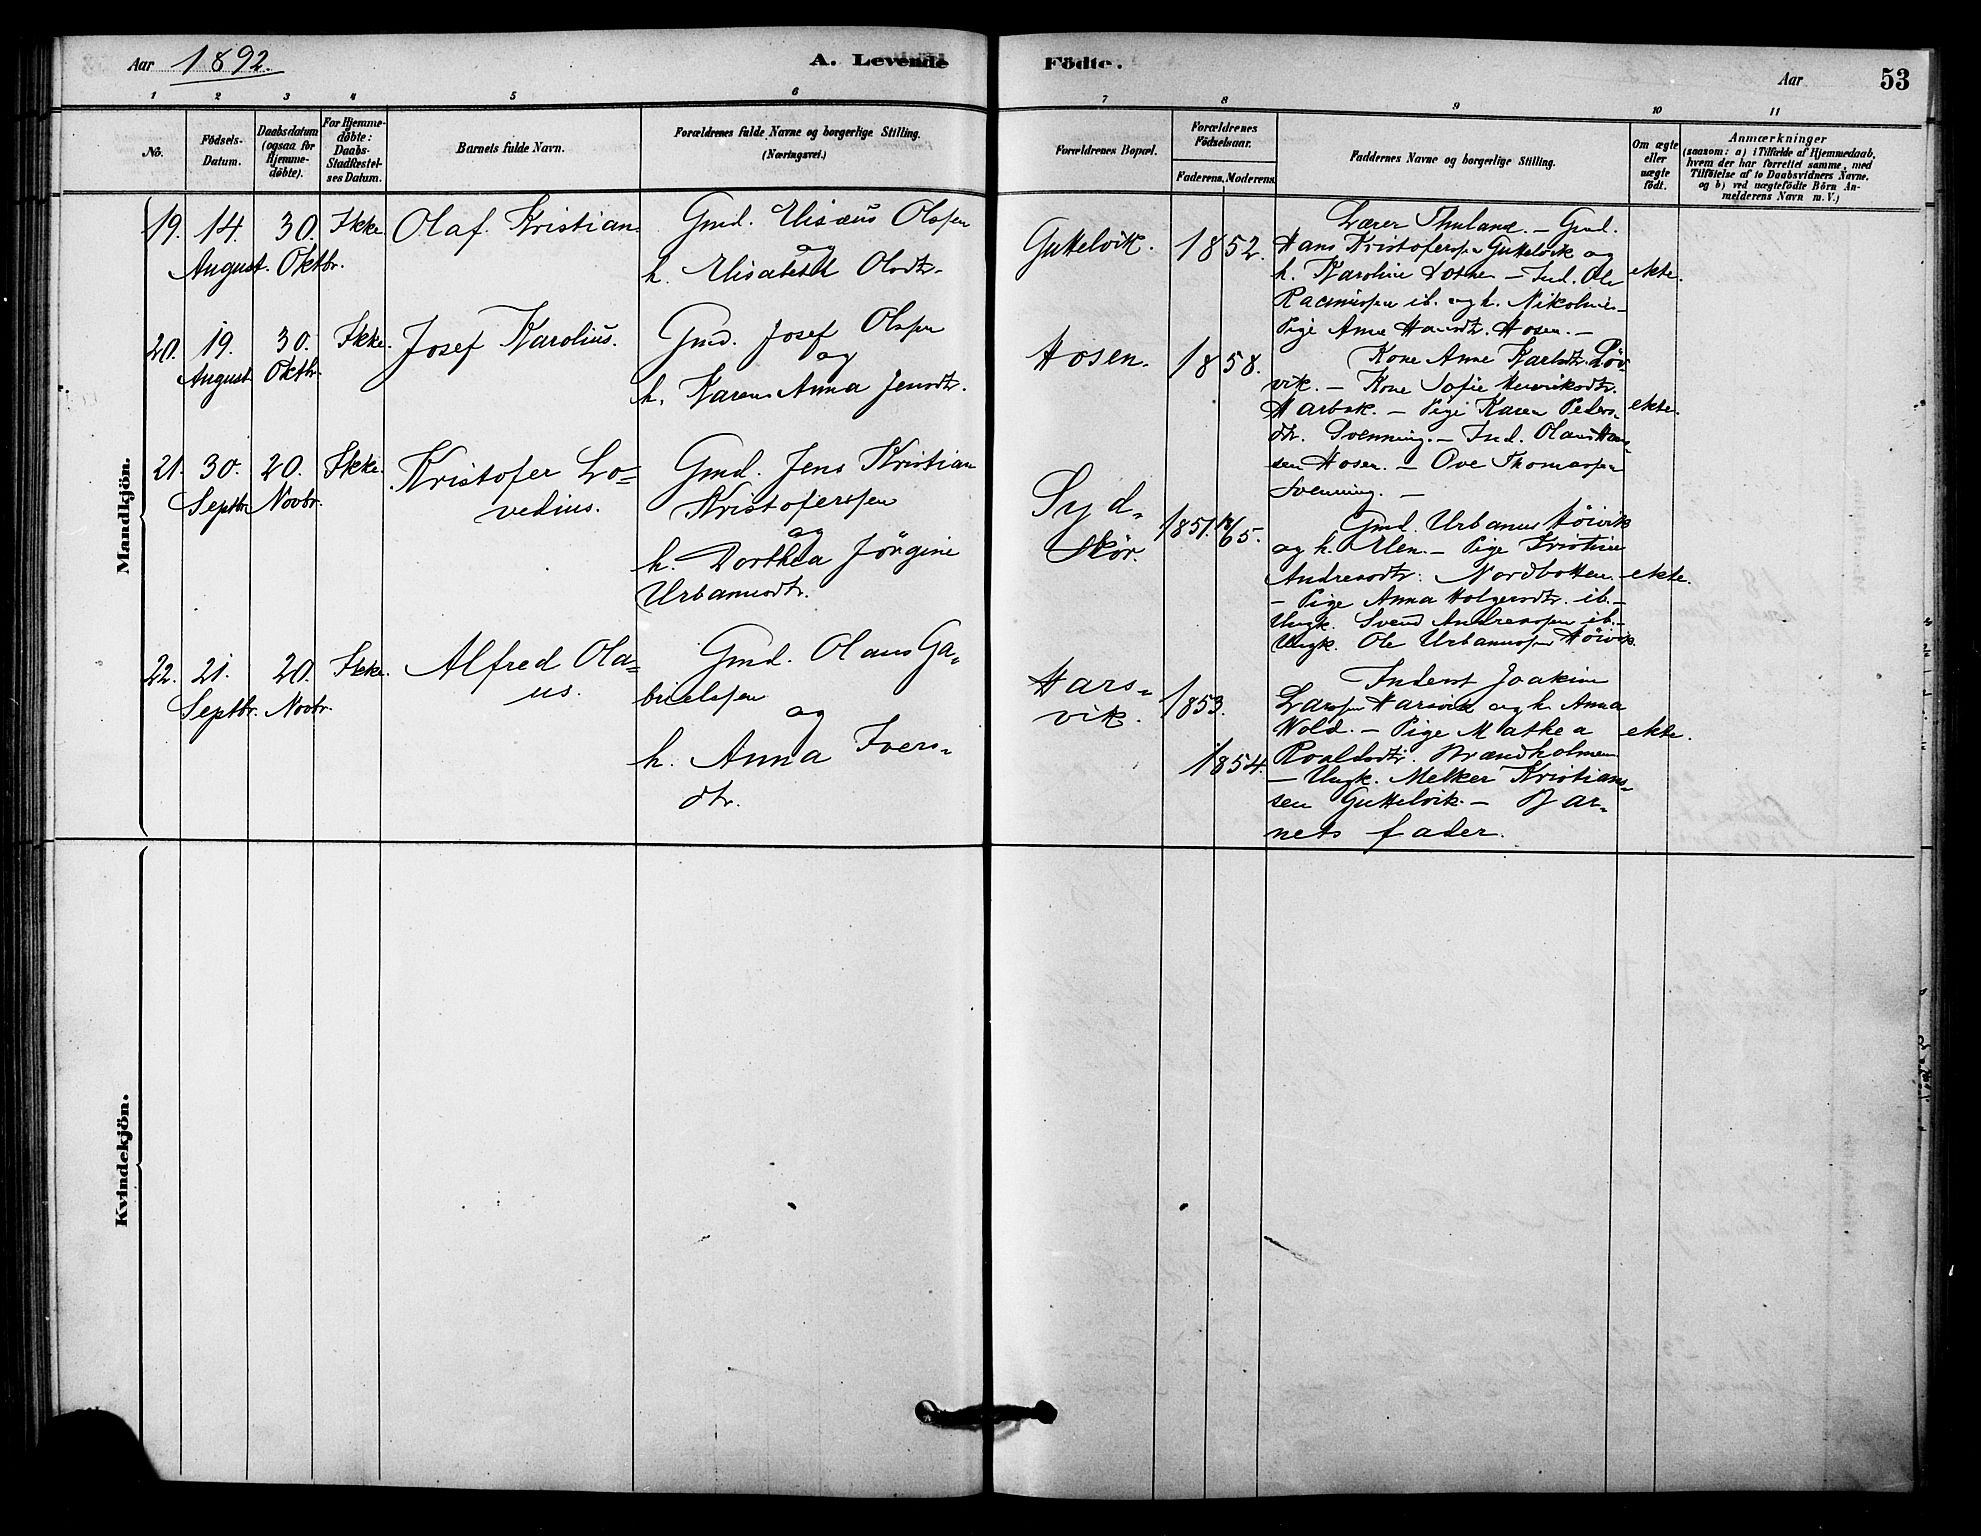 Aar 1892.
A. Levende
Födte.
Aar
53
1 2 3 4 5 6 7 8 9 10 11
No.
Födsels-
Datum.
Daabsdatum
(ogsaa for
Hjemme-
döbte).
For Hjemme-
döbte:
Daabs-
Stadfestel-
ses Datum.
Barnets fulde Navn.
Forældrenes fulde Navne og borgerlige Stilling.
(Næringsvei.)
Forældrenes Bopæl.
Forældrenes
Födselsaar.
Faderens. Moderens.
Faddernes Navne og borgerlige Stilling.
Om ægte
eller
uægte
födt.
Anmærkninger
(saasom: a) i Tilfælde af Hjemmedaab,
hvem der har forrettet samme, med
Tilföielse af to Daabsvidners Navne.
og b) ved uægtefödte Börn An-
melderens Navn m. V.)
Mandkjön.
19.
14.
August.
30.
Oktbr.
Ikke
Olaf Kristian.
Gmd. Elisæus Olsen
og
h. Elisabeth Olsdt.
Guttelvik.
1852.
Lærer Thuland. – Gmd.
Hans Kristofersen Guttelvik og
h. Karoline – Ind. Ole
Rasmussen ib. og h. Nikoline –
Pige Anne Hansdt. Hosen. –
ekte.
20.
19.
August
30.
Oktbr.
Ikke.
Josef Karolius.
Gmd. Josef Olsen
og
h. Karen Anna Jensdtr.
Hosen.
1858.
Kone Anne Karlsdtr. Löv-
vik. – Kone Sofie Henriksdtr.
Harbak. – Pige Karen Peders-
dtr. Svenning. – Ind. Olaus Han-
sen Hosen. – Ove Thomassen
Svenning. –
ekte.
21.
30.
Septbr.
20.
Novbr.
Ikke.
Kristofer Lo-
vedius.
Gmd. Jens Kristian
Kristoffersen
og
h. Dorthea Jörgine
Urbanusdtr.
Syd-
skör.
1851. 18/65.
Gmd. Urbanus Höivik
og h. Elen. – Pige Kristine
Andreasdtr. Nordbotten.
– Pige Anna Holgersdtr. ib. –
Ungk. Svend Andreassen ib. –
Ungk. Ole Urbanussen Höivik.
ekte.
22.
21.
Septbr.
20.
Novbr.
Ikke.
Alfred Ola-
us.
Gmd. Olaus Ga-
brielsen
og
h. Anna Ivers-
dtr.
Hars-
vik.
1853.
1854.
Inderst Joakim
Larsen Harsvik og h. Anna
Wold. – Pige Mathea
Roaldsdtr. Brandholmen
– Ungk. Melker Kristian-
sen Guttelvik – Bar-
nets fader.
ekte.
Kvindekjön.